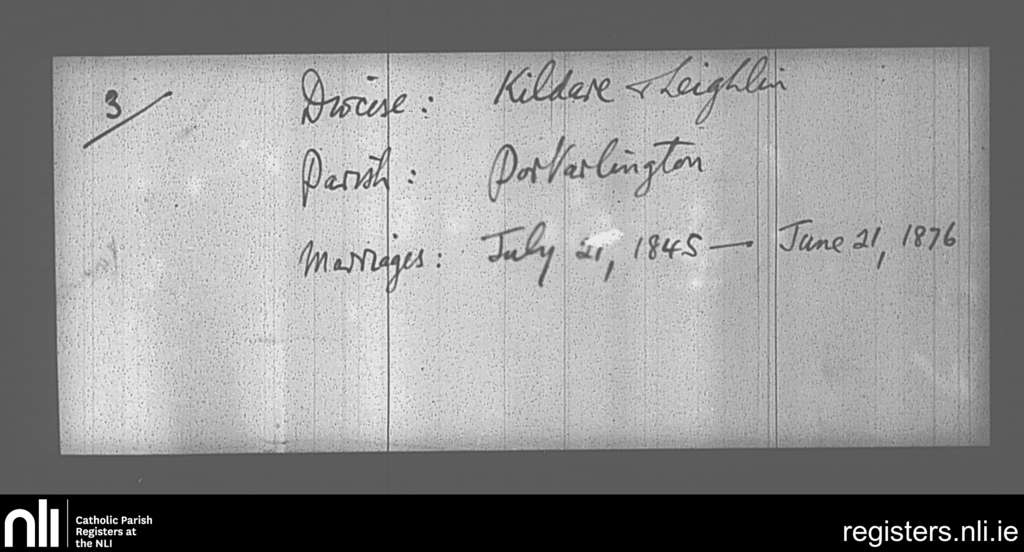 3
Diocese: Kildare & Leighlin
Parish: Portarlington
Marriages: July 21, 1845 — June 21, 1876
nli
Catholic Parish
Registers at
the NLI
registers.nli.ie